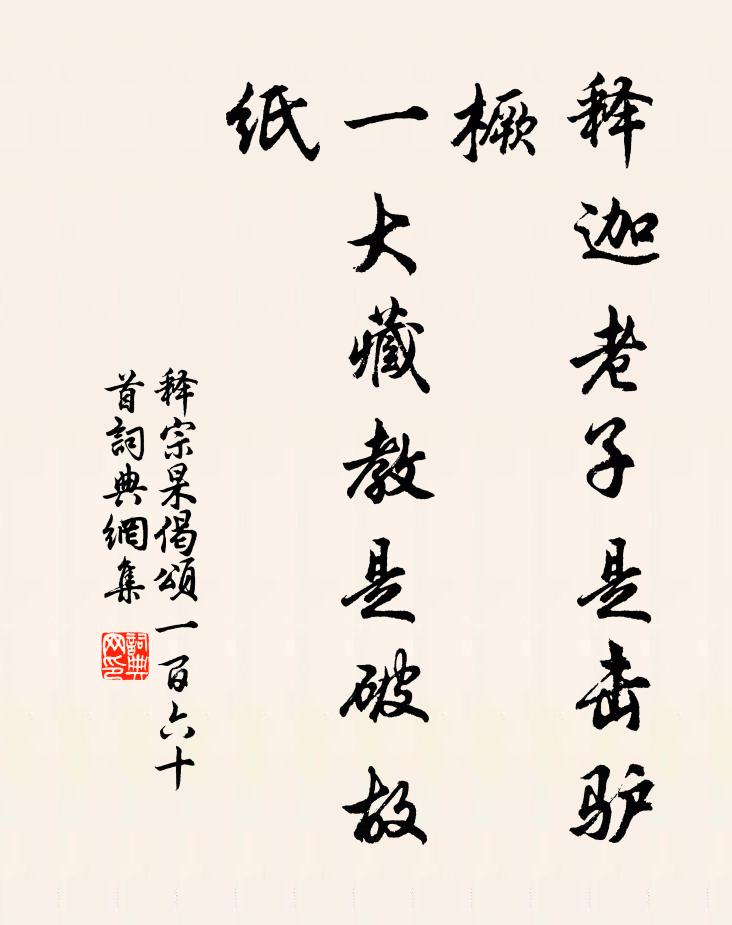 释迦老子是击驴
橛
一大藏教是破故
纸
释宗杲偈頌一百六十
首詞典網集
詞典網印